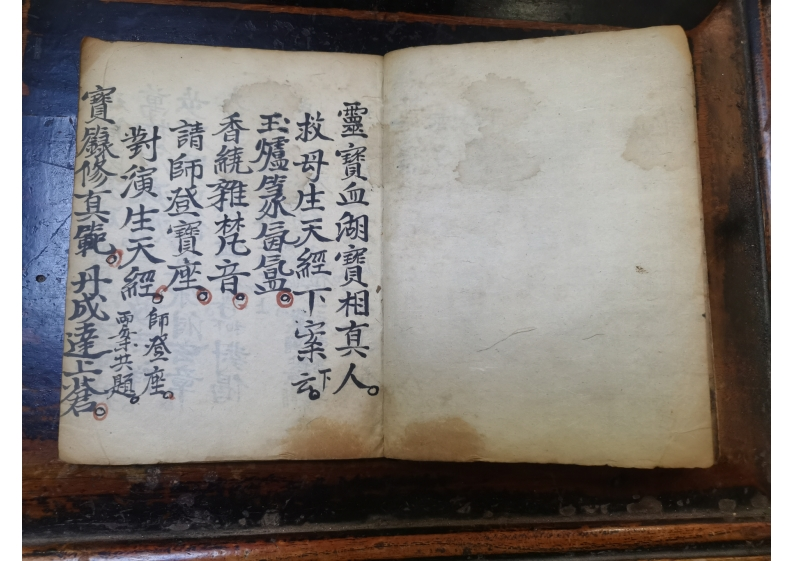 靈寶血湖寶相真人。
救母生天經下案云。下
玉爐篆氤氳。
香繞雜梵音。
請師登寶座。
對演生天經。師登座。
兩案共題。
寶籙修真範。丹成達上蒼。